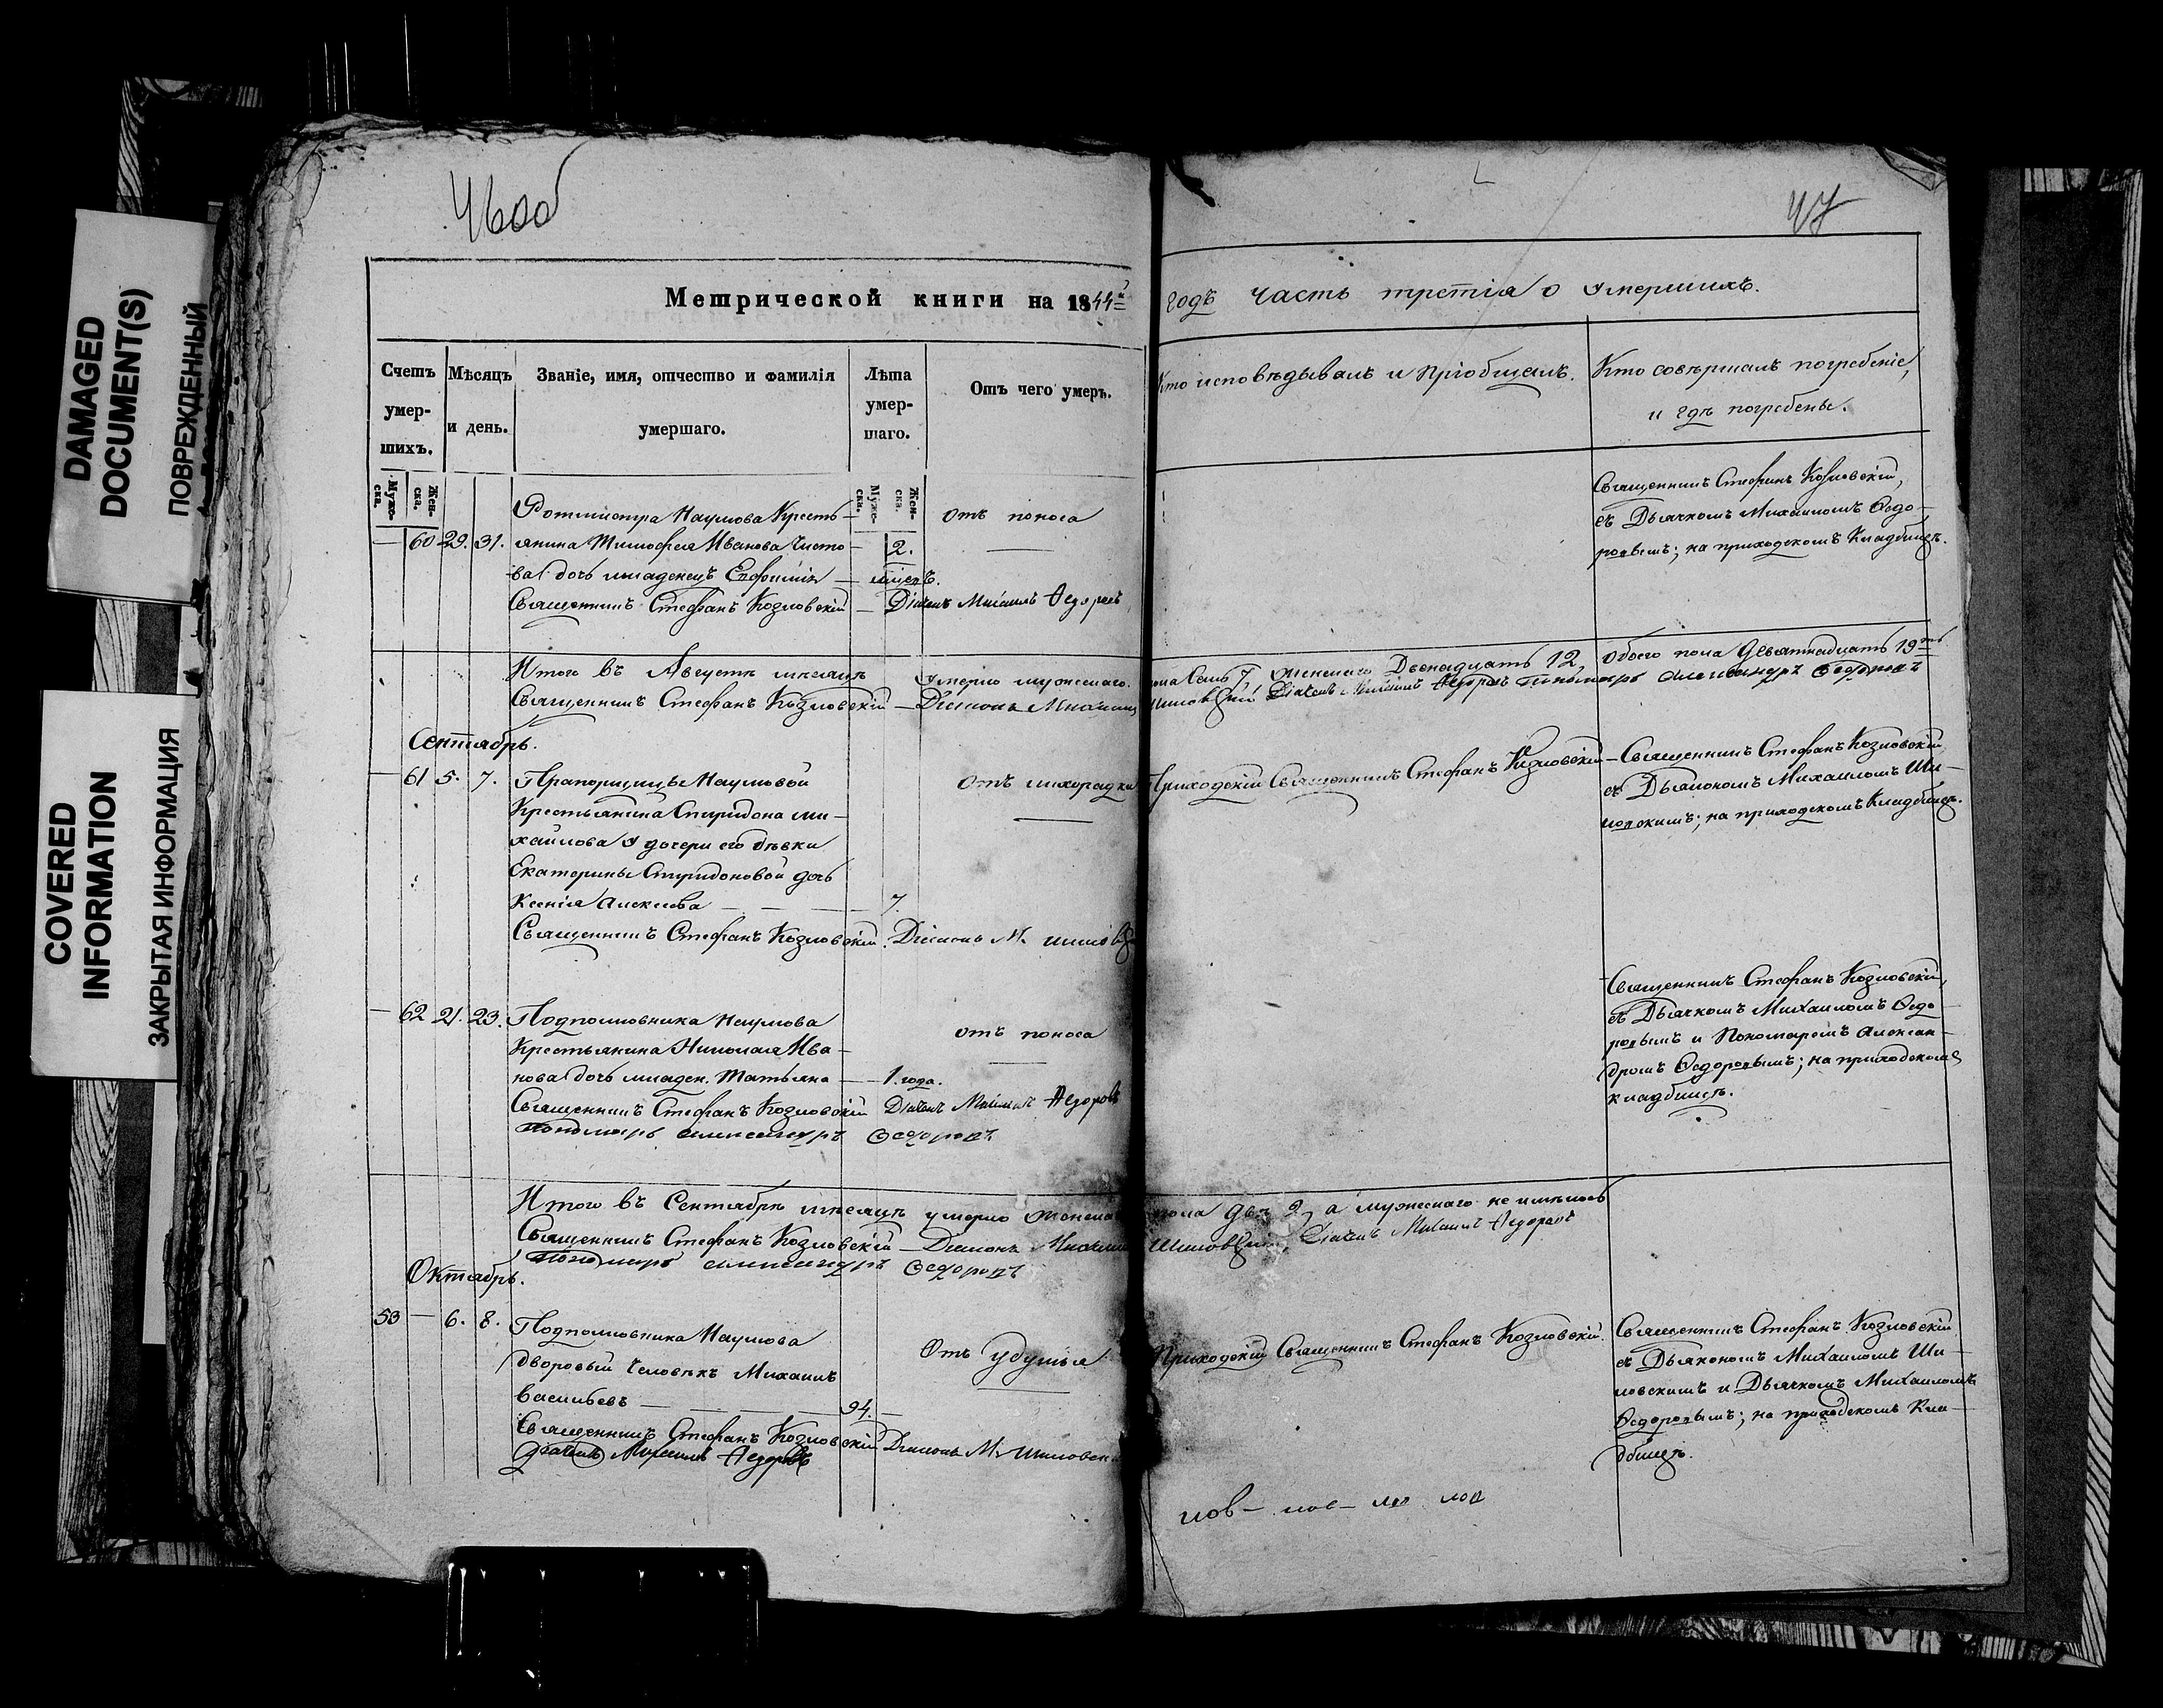 DAMAGED
DOCUMENT(S)
ПОВРЕЖДЕННЫЙ
COVERED
INFORMATION
ЗАКРЫТАЯ ИНФОРМАЦИЯ
46об
47
Метрической книги на 1844й годъ часть третія о умершихъ.
Счетъ умер-шихъ.
Муже-ска.
Жен-ска.
Мѣсяцъ и день.
Званіе, имя, отчество и фамилія умершаго.
Лѣта умер-шаго.
Муже-ска.
Жен-ска.
Отъ чего умеръ.
Кто исповѣдывалъ и пріобщалъ.
Кто совѣршалъ погребеніе, и гдѣ погребены.
— 60 29. 31.
Ротмистра Наумова Кресть—
янина Тимофея Ивановачисто—
ва дочь младенецъ Евфимія —
2.
мцевъ.
отъ поноса
Священникъ Стефанъ Козловскій — Дьячекъ Михаилъ Федоровъ
Священникъ Стефанъ Козловскій,
съ Дьячкомъ Михаиломъ Ѳедо—
ровымъ; на приходскомъ Кладбищѣ.
Итого въ Августѣ мѣсяцѣ умерло мужескаго пола Семь 7, женскаго Двенадцать 12, обоего пола девятнадцать 19ть
Священникъ Стефанъ Козловскій — Діаконъ Михаилъ Шиловскій Дьячекъ Михаилъ Федоровъ Пономарь Александръ Ѳедоровъ
Сентябрь.
— 61 5. 7.
Прапорщицы Наумовой
Крестьянина Спиридона Ми—
хайлова у дочери его дѣвки
Екатерины Спиридоновой дочь
Ксенія Алексеева — — — 7.
отъ лихорадки
Священникъ Стефанъ Козловскій. Діаконъ М. Шиловскій
Приходскій Священникъ Стефанъ Козловскій
— Священникъ Стефанъ Козловскій,
съ Дьякономъ Михаиломъ Ши—
ловскимъ; на приходскомъ Кладбищѣ.
— 62 21. 23.
Подполковника Наумова
Крестьянина Николая Ива—
нова дочь младен. Татьяна — 1. года.
отъ поноса
Священникъ Стефанъ Козловскій Дьячекъ Михаилъ Федоровъ
Пономарь Александръ Ѳедоровъ
Священникъ Стефанъ Козловскій,
съ Дьячкомъ Михаиломъ Ѳедо—
ровымъ и Пономаремъ Алексан—
дромъ Ѳедоровымъ; на приходскомъ
кладбищѣ.
Итого въ Сентябрѣ мѣсяцѣ умерло женскаго пола двѣ 2, а мужескаго не имѣлось
Священникъ Стефанъ Козловскій — Діаконъ Михаилъ Шиловскій, Дьячекъ Михаилъ Федоровъ
Пономарь Александръ Ѳедоровъ
Октябрь.
53 — 6. 8.
Подполковника Наумова
дворовый человѣкъ Михаилъ
Васильевъ — — — 94. —
Отъ удушья
Священникъ Стефанъ Козловскій Діаконъ М. Шиловскій
Дьячекъ Михаилъ Федоровъ
Приходскій Священникъ Стефанъ Козловскій.
Священникъ Стефанъ Козловскій
съ Дьякономъ Михаиломъ Ши—
ловскимъ и Дьячкомъ Михаиломъ
Ѳедоровымъ; на приходскомъ Кла—
дбищѣ.